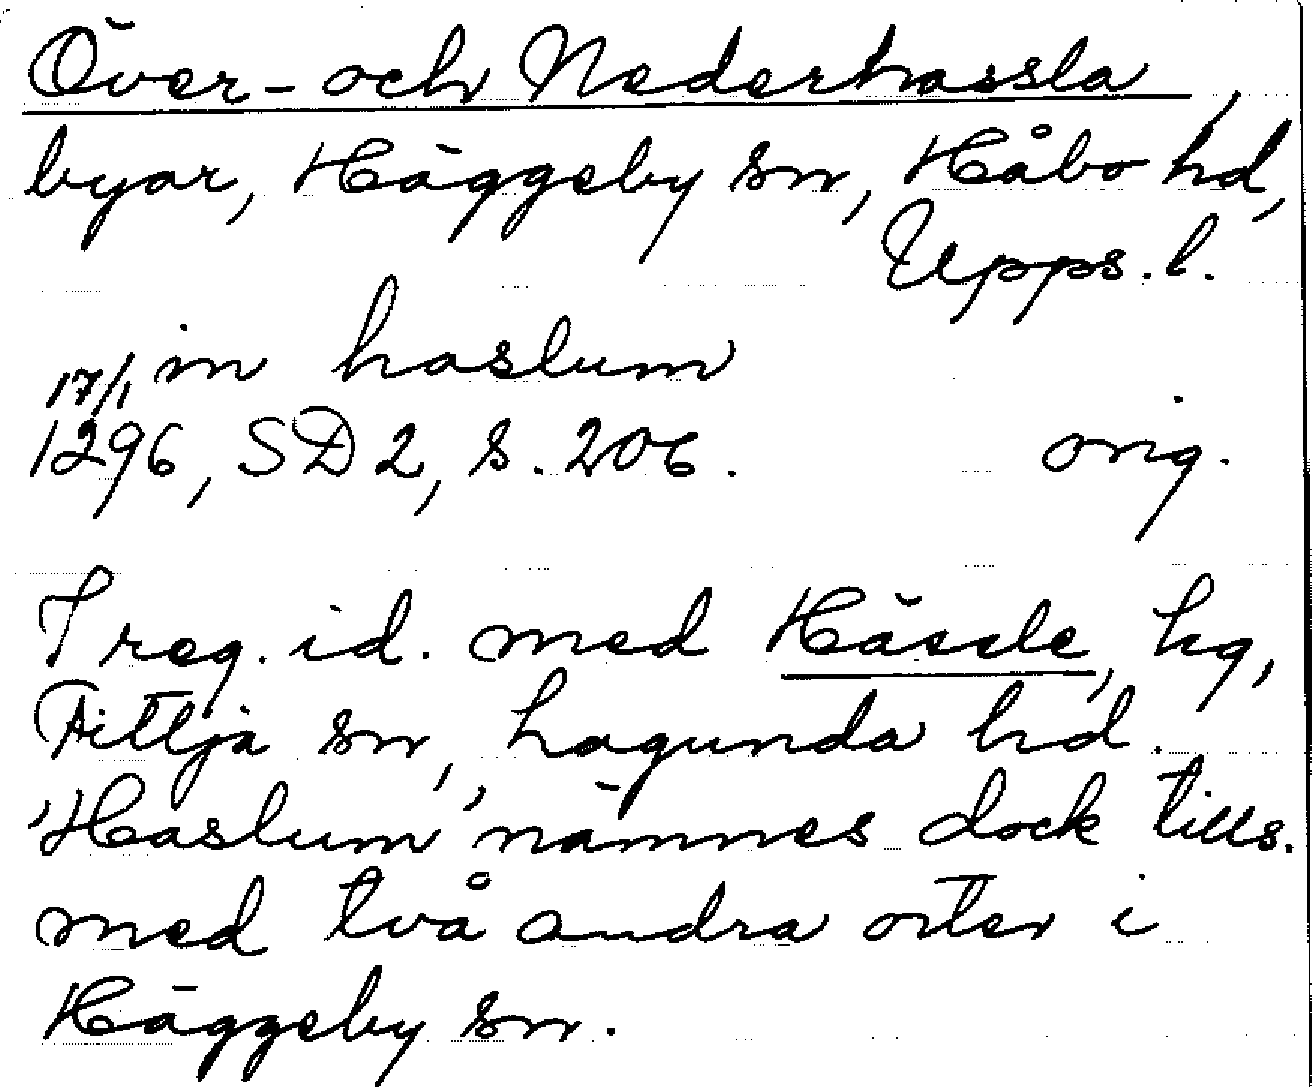 Över- och Nederhassla,
byar, Häggeby sn, Håbo hd,
Upps. l.
17/1 in haslum
1296, SD 2, s. 206. orig.
I reg. id. med Hässle, hg,
Fittja sn, Lagunda hd.
'Haslum' nämnes dock tills.
med två andra orter i
Häggeby sn.